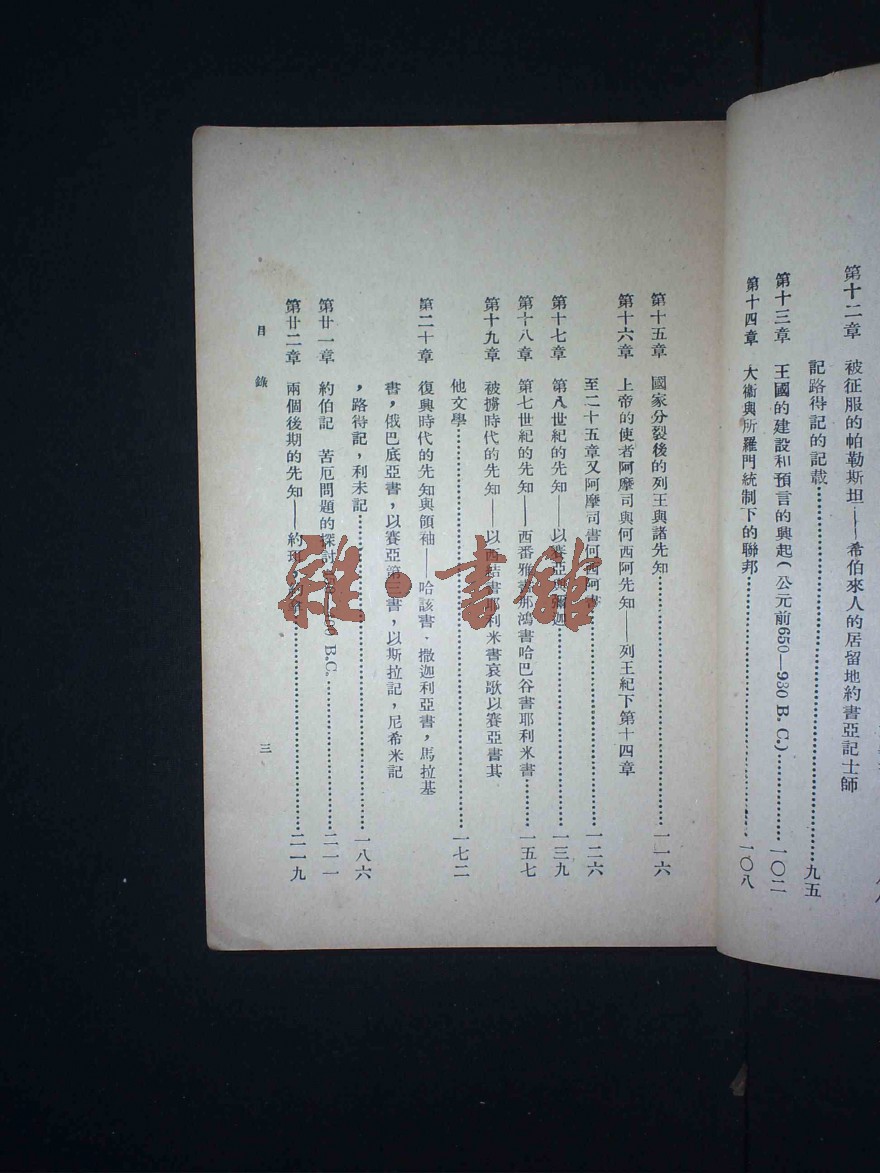 第十二章　被征服的帕勒斯坦——希伯來人的居留地約書亞記士師
記路得記的記載…………九五
第十三章　王國的建設和預言的興起(公元前650—930 B. C.)…………一〇二
第十四章　大衞與所羅門統制下的聯邦…………一〇八
第十五章　國家分裂後的列王與諸先知…………一一六
第十六章　上帝的使者阿摩司與何西阿先知——列王紀下第十四章
至二十五章又阿摩司書何西阿書…………一二六
第十七章　第八世紀的先知——以賽亞與彌迦…………一三九
第十八章　第七世紀的先知——西番雅書那鴻書哈巴谷書耶利米書…………一五七
第十九章　被擄時代的先知——以西結書耶利米書哀歌以賽亞書其
他文學…………一七二
第二十章　復興時代的先知與領袖——哈該書．撒迦利亞書，馬拉基
書，俄巴底亞書，以賽亞第三書，以斯拉記，尼希米記
，路得記，利未記…………一八六
第廿一章　約伯記　苦厄問題的探討 B.C.…………二一一
第廿二章　兩個後期的先知——約珥…………二一九
目錄
三
雜·書館